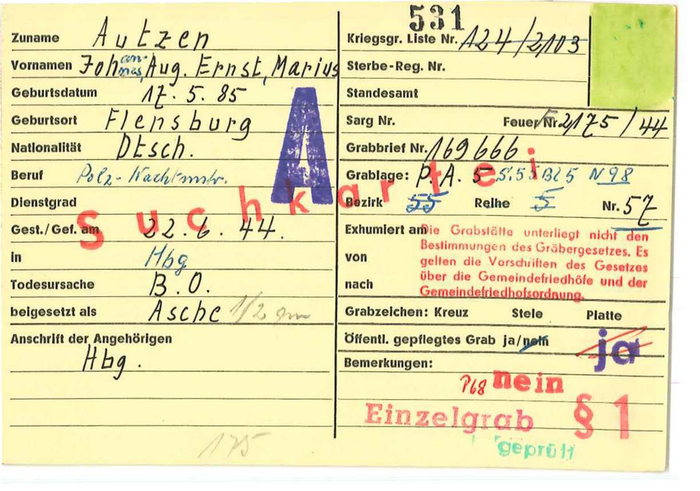 531
Zuname Autzen
Vornamen Johannes, Aug. Ernst, Marius
Geburtsdatum 17.5.85
Geburtsort Flensburg
Nationalität Dtsch.
Beruf Polz-Wachtmstr.
Dienstgrad
Gest./Gef. am 22.6.44.
in Hbg
Todesursache B.O.
beigesetzt als Asche 1/2 qm
Anschrift der Angehörigen
Hbg.
175
A
Suchkartei
Kriegsgr. Liste Nr. A24/2103
Sterbe-Reg. Nr.
Standesamt
Sarg Nr. Feuer Nr. 2175/44
Grabbrief Nr. 169666
Grablage: P.A.5 Bl 5 N 98
Bezirk 55 Reihe 5 Nr. 57
Exhumiert am
von
nach
Die Grabstätte unterliegt nicht den
Bestimmungen des Gräbergesetzes. Es
gelten die Vorschriften des Gesetzes
über die Gemeindefriedhöfe und der
Gemeindefriedhofsordnung.
Grabzeichen: Kreuz Stele Platte
Öffentl. gepflegtes Grab ja/nein ja
Bemerkungen:
P68 nein
Einzelgrab § 1
geprüft